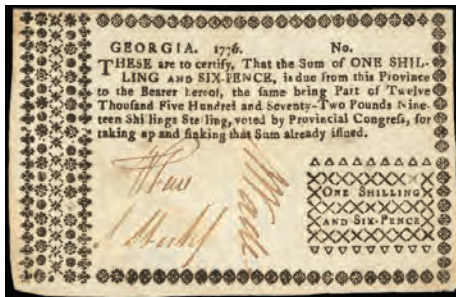 GEORGIA. 1776. No.
THESE are to certify, That the Sum of ONE SHIL-
LING AND SIX-PENCE, is due from this Province
to the Bearer hereof, the same being Part of Twelve
Thousand Five Hundred and Seventy-Two Pounds Nine-
teen Shillings Sterling, voted by Provincial Congreſs, for
taking up and ſinking that Sum already iſſued.
ONE SHILLING
AND SIX-PENCE